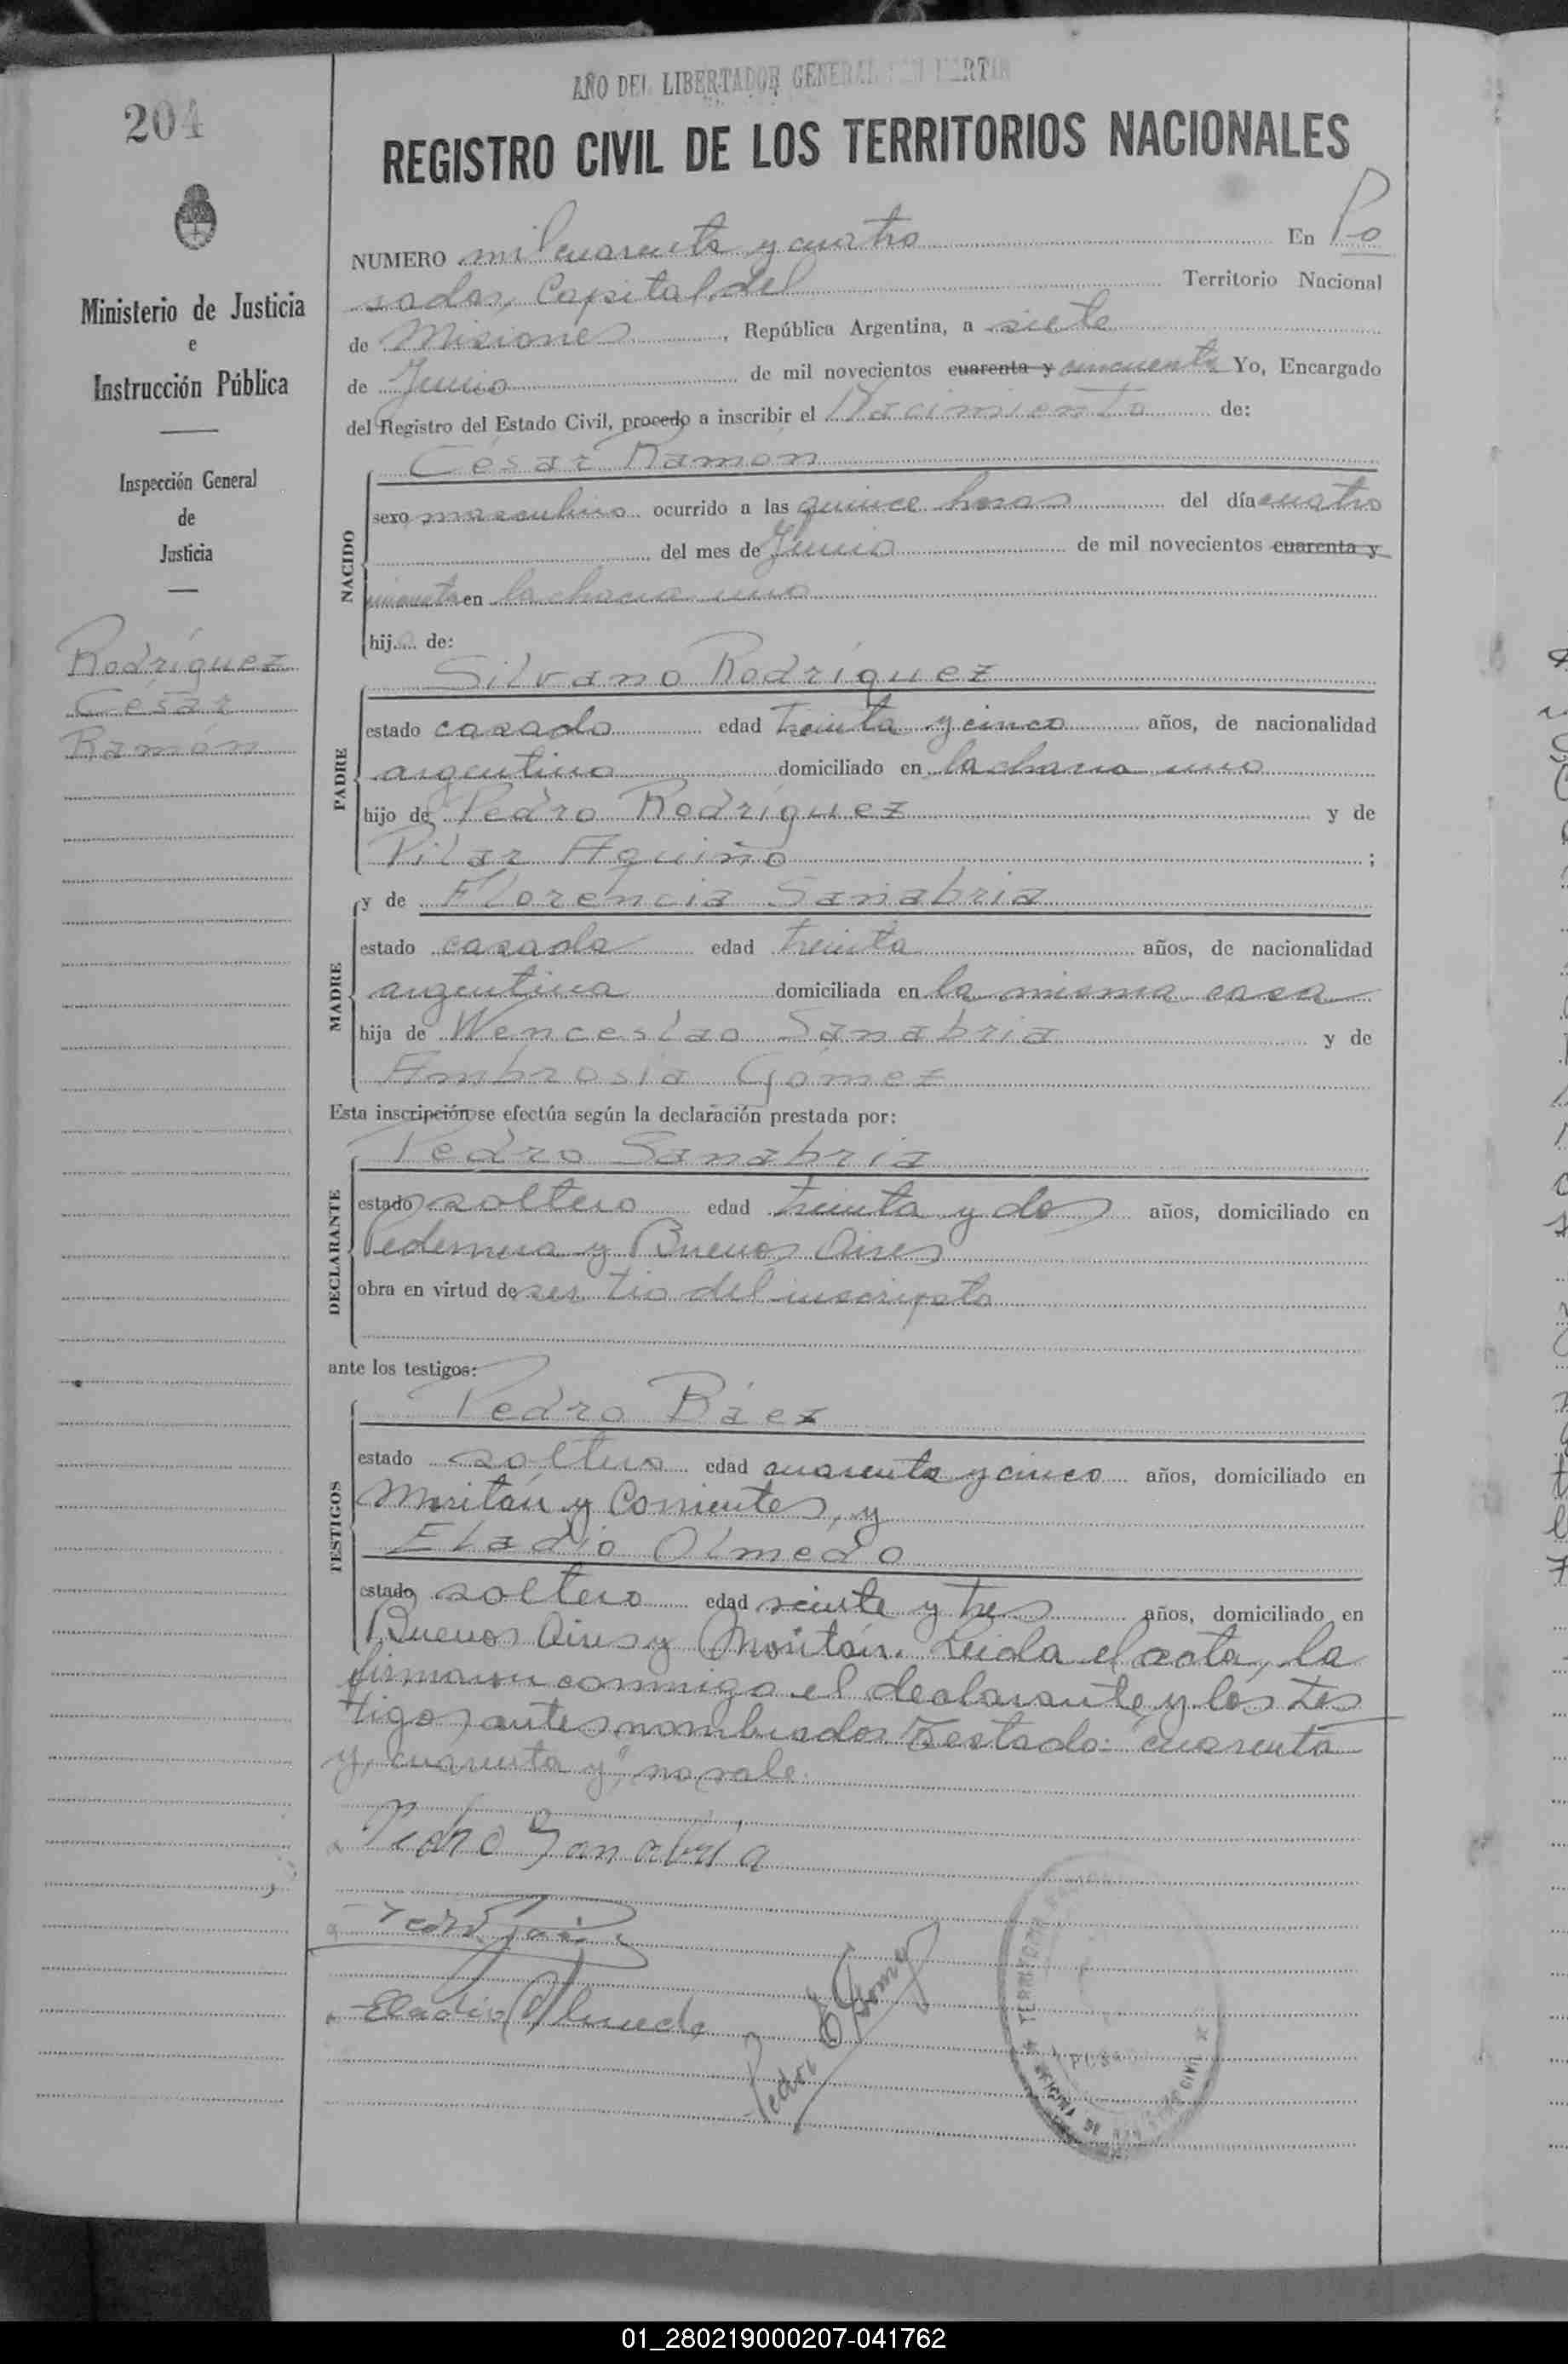 AÑO DEL LIBERTADOR GENERAL SAN MARTIN
204
REGISTRO CIVIL DE LOS TERRITORIOS NACIONALES
Ministerio de Justicia
e
Instrucción Pública
Inspección General
de
Justicia
Rodríguez
César
Ramón
NUMERO mil cuarenta y cuatro En Po
sadas, Capital del Territorio Nacional
de Misiones, República Argentina, a siete
de Junio de mil novecientos cuarenta y cincuenta Yo, Encargado
del Registro del Estado Civil, procedo a inscribir el Nacimiento de:
NACIDO
César Ramón
sexo masculino ocurrido a las quince horas del día cuatro
del mes de Junio de mil novecientos cuarenta y
cincuenta en la chacra uno
hijo de:
PADRE
Silvano Rodríguez
estado casado edad treinta y cinco años, de nacionalidad
argentino domiciliado en la chacra uno
hijo de Pedro Rodríguez y de
Pilar Aquino;
MADRE
y de Florencia Sanabria
estado casada edad treinta años, de nacionalidad
argentina domiciliada en la misma casa
hija de Wenceslao Sanabria y de
Ambrosia Gómez
Esta inscripción se efectúa según la declaración prestada por:
DECLARANTE
Pedro Sanabria
estado soltero edad treinta y dos años, domiciliado en
y Buenos Aires
obra en virtud de ser tio del inscripto
ante los testigos:
TESTIGOS
Pedro Báez
estado soltero edad cuarenta y cinco años, domiciliado en
y Corrientes, y
Eladio Olmedo
estado soltero edad veinte y tres años, domiciliado en
Buenos Aires y Leida el acta, la
firmaron conmigo el declarante y los tes
tigos antes nombrados Testado: "cuarenta
y, cuarenta y", no vale.
Pedro Sanabria
Eladio Olmedo
Pedro
TERRITORIO
OFICINA DE
CIVIL
01_280219000207-041762